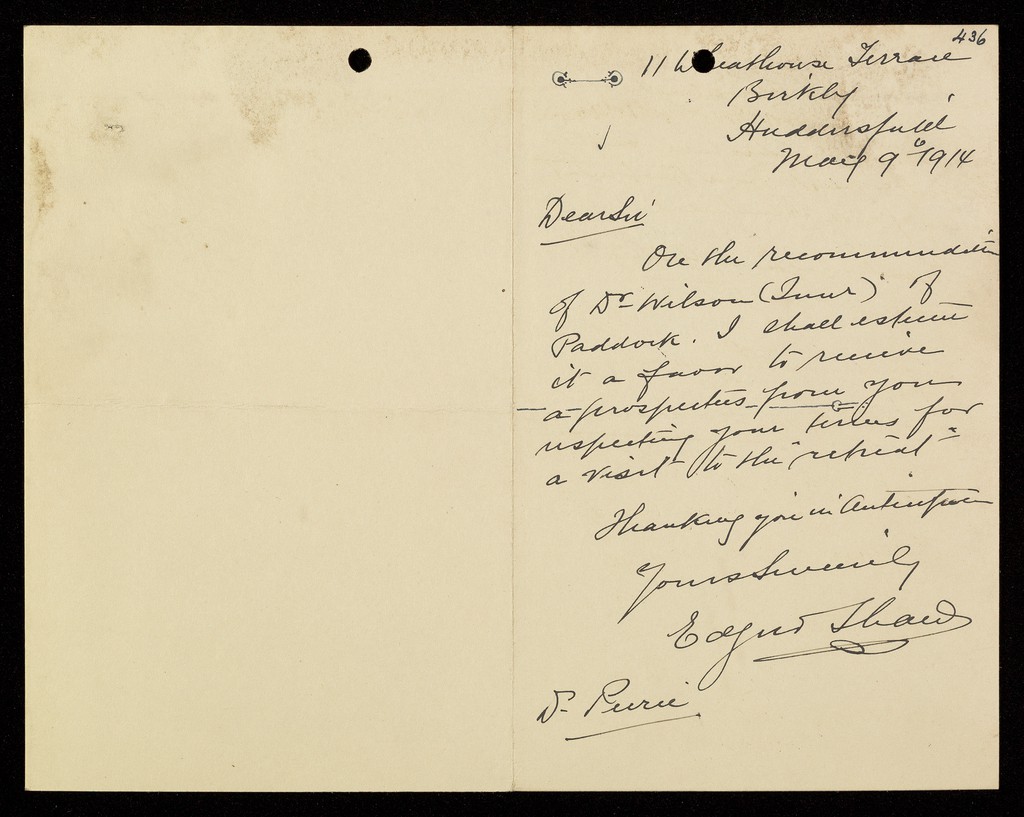 436
11 Wheathouse Terrace
Birkby
Huddersfield
May 9th 1914
Dear Sir
On the recommendation
of Dr Wilson (Junr) of
Paddock. I shall esteem
it a favor to receive
a prospectus from you
respecting your terms for
a visit to the "retreat"
Thanking you in Anticipation
Yours Sincerely
Edgar Shaw
Dr Pierce